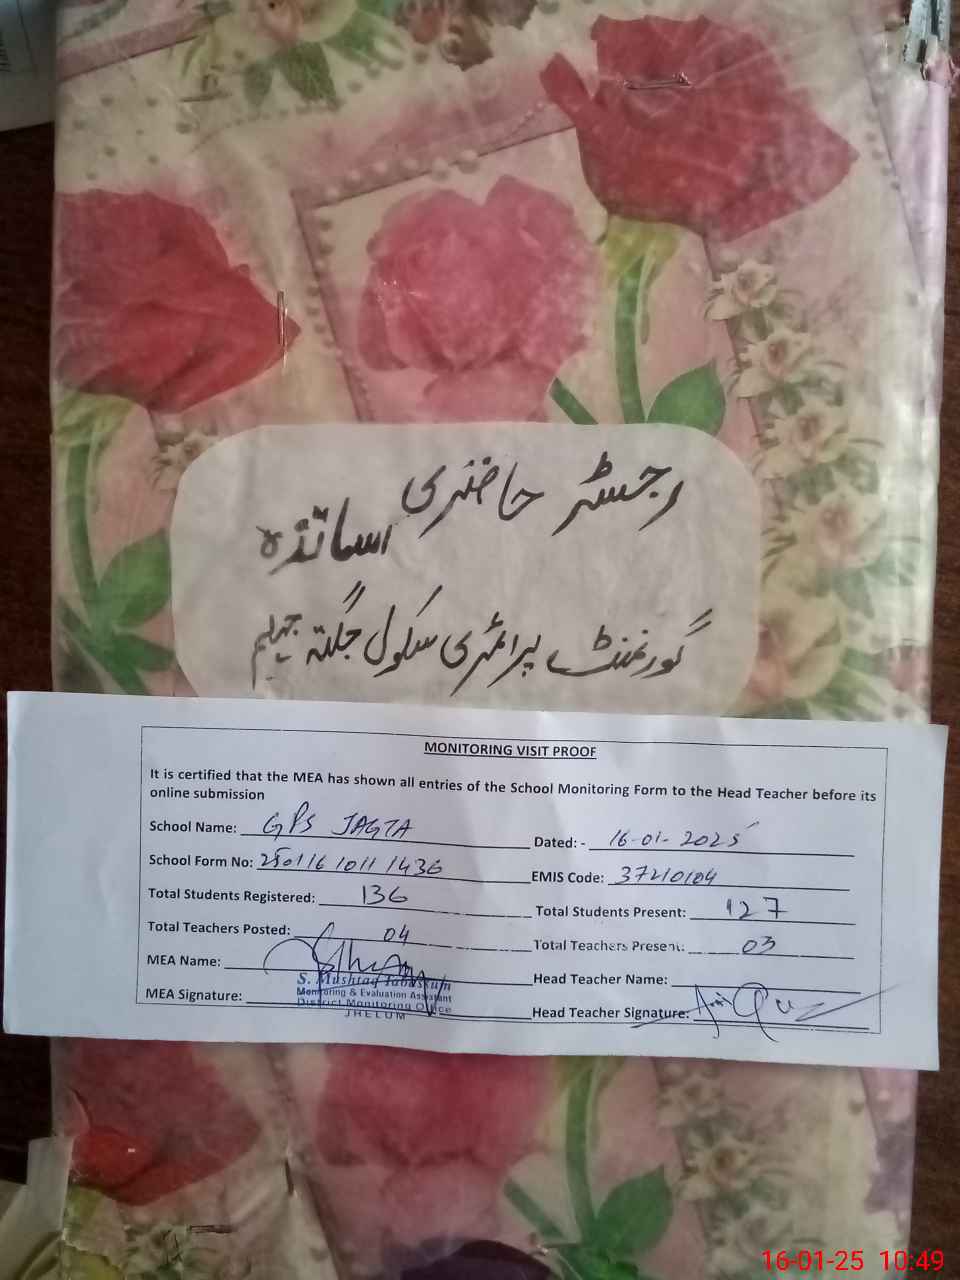 رجسٹر حاضری اساتذہ
گورنمنٹ پرائمری سکول جگتہ جہلم
MONITORING VISIT PROOF
It is certified that the MEA has shown all entries of the School Monitoring Form to the Head Teacher before its
online submission
School Name: GPS JAGTA Dated: - 16-01-2025
School Form No: 250116 1011 1436 EMIS Code: 37210104
Total Students Registered: 136 Total Students Present: 127
Total Teachers Posted: 04 Total Teachers Present: 03
MEA Name: Head Teacher Name:
S. Mushtaq Tabassum
Monitoring & Evaluation Assistant
MEA Signature: Head Teacher Signature:
District Monitoring Office
JHELUM
16-01-25 10:49